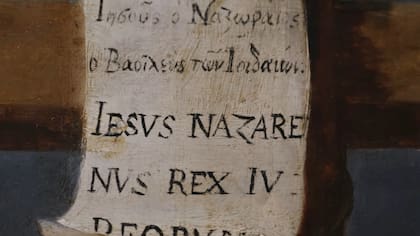 Ἰησοῦς ὁ Ναζωραῖος
ὁ Βασιλεὺς τῶν Ἰȣδαίων.
IESVS NAZARE
NVS REX IV:
DEORVM